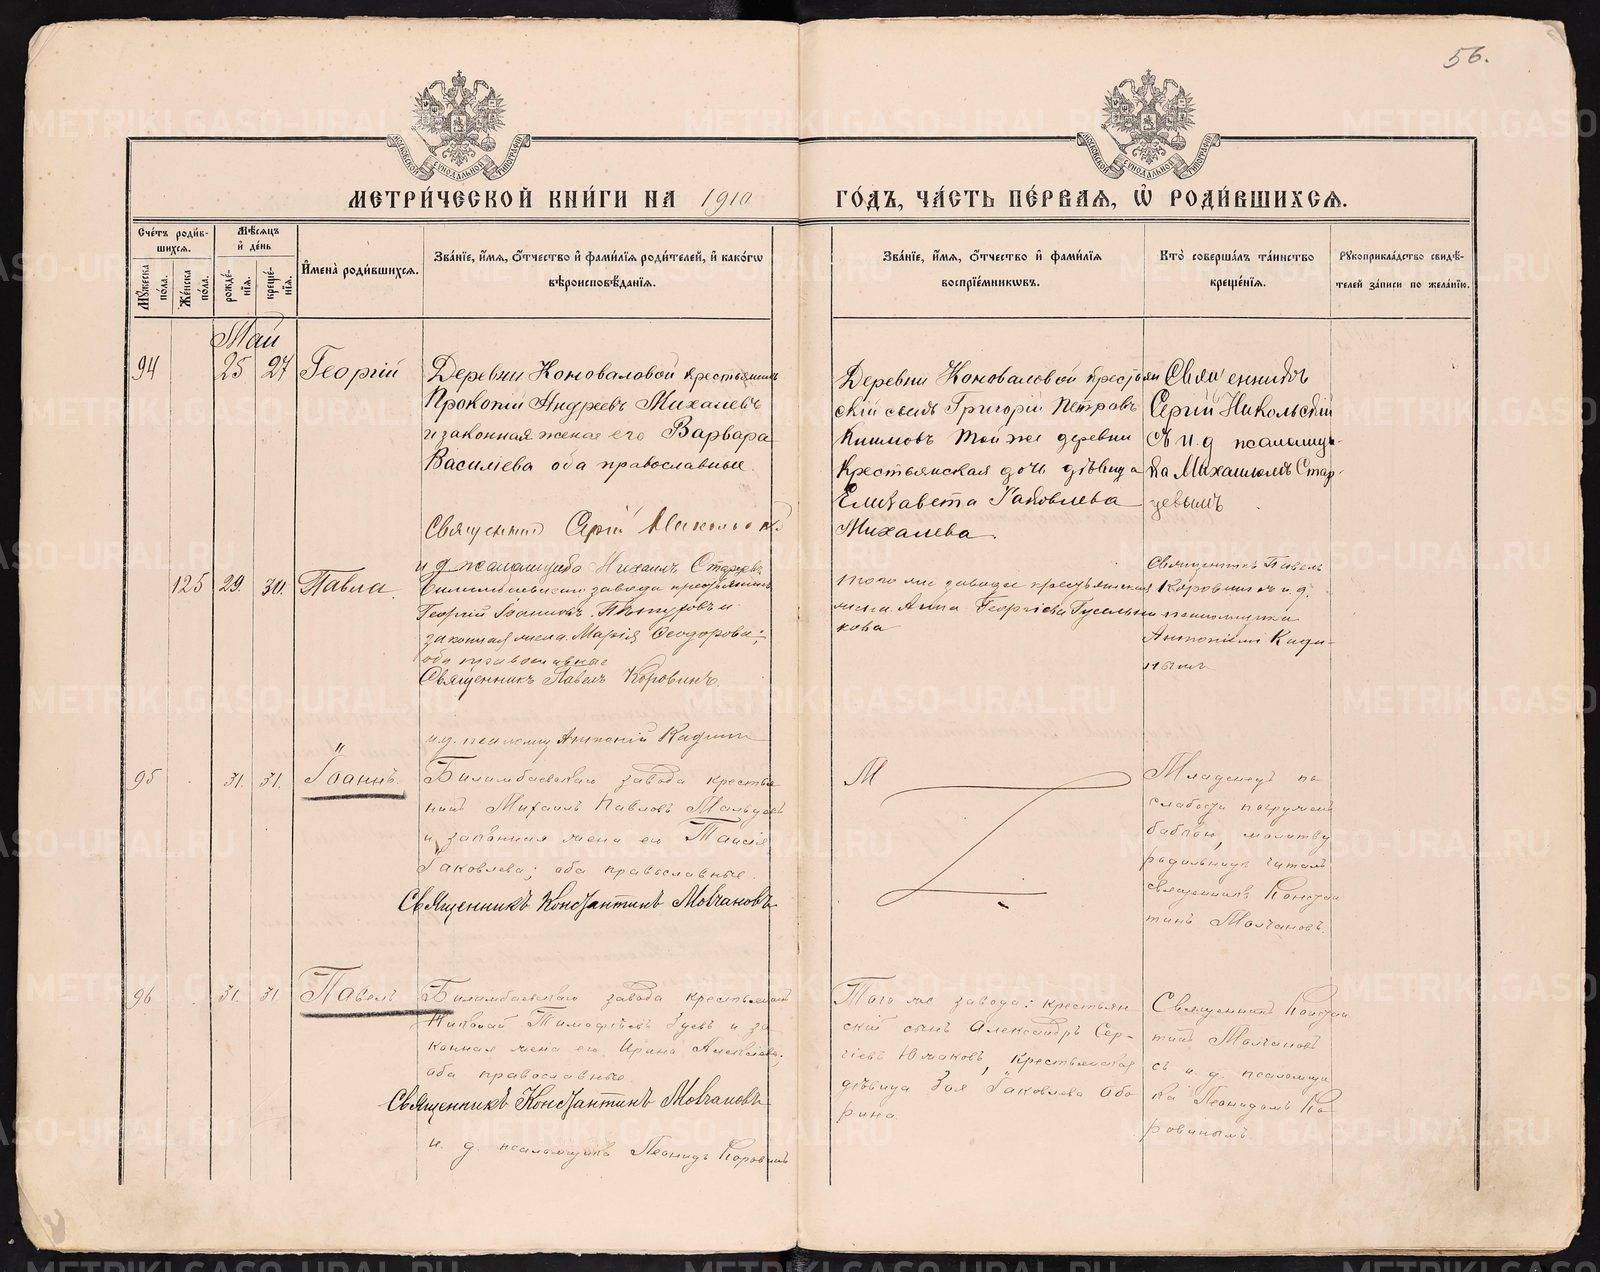 56.
МЕТРИ́ЧЕСКОЙ КНИ́ГИ НА 1910
ГО́ДЪ, ЧА́СТЬ ПЕ́РВАЯ, Ѡ҆ РОДИ́ВШИХСЯ.
Сче́тъ роди́в-
шихся.
Мꙋ́жеска по́ла.
Же́нска по́ла.
Мѣ́сяцъ и҆ де́нь
рожде́-нїѧ.
креще́-нїѧ.
И҆мена̀ роди́вшихся.
Зва́нїе, и҆́мѧ, ѻ҆́тчество и҆ фами́лїѧ роди́телей, и҆ како́гѡ
вѣроисповѣ́данїѧ.
Зва́нїе, и҆́мѧ, ѻ҆́тчество и҆ фами́лїѧ
воспрїе́мникѡвъ.
Кто̀ соверша́лъ та́инство
креще́нїѧ.
Рꙋкоприкла́дство свидѣ́-
телей за́писи по жела́нїю.
Май
94 25 27 Георгій
Деревни Коноваловой крестьянинъ
Прокопій Андреевъ Михалевъ
и законная жена его Варвара
Василіева оба православные.
Священник Сергій Никольскій
и д псаломщика Михаилъ Старцевъ
Деревни Коноваловой крестьян
скій сынъ Григорій Петровъ
той же деревни
Крестьянская дочь дѣвица
Елизавета Іаковлева
Михалева.
Священникъ
Сергій Никольскій
с и. д псаломщи-
ка Михаиломъ Стар-
цевымъ.
125 29. 30. Павла.
Билимбаевскаго завода крестьянинъ
Георгій Іоанновъ и
законная жена Марія Ѳеодорова;
оба православные
Священникъ Павелъ Коровинъ.
и.д. псаломщ Антоній Кадинъ
того же завода крестьянская
жена Анна Георгіева Гусельни
кова
Священникъ Павелъ
Коровинъ с и.д.
псаломщика
Антоніем Кади-
нымъ
95 31. 31. Іоаннъ.
Билимбаевскаго завода крестья
нинъ Михаилъ Павловъ Мальцевъ
и законная жена его Таисія
Іаковлева; оба православные.
Священникъ Константинъ Мовчановъ
М
Младенецъ по
слабости погруженъ
бабкой, молитву
родильницѣ читалъ
священникъ Констан
тинъ Молчановъ.
96 31. 31 Павелъ
Билимбаевскаго завода крестьянинъ
Николай Тимофѣевъ Зуевъ и за
конная жена его Ирина Алексѣева;
оба православные.
Священникъ Константинъ Мовчановъ
и. д. псаломщика Леонидъ Коровинъ
Того же завода: крестьян
скій сынъ Александръ Сер-
гіевъ Южаковъ, крестьянская
дѣвица Зоя Іаковлева Обо
рина.
Священникъ Констан
тинъ Молчановъ
съ и. д. псаломщи
ка Леонидомъ Ко
ровинымъ.
METRIKI.GASO-URAL.RU